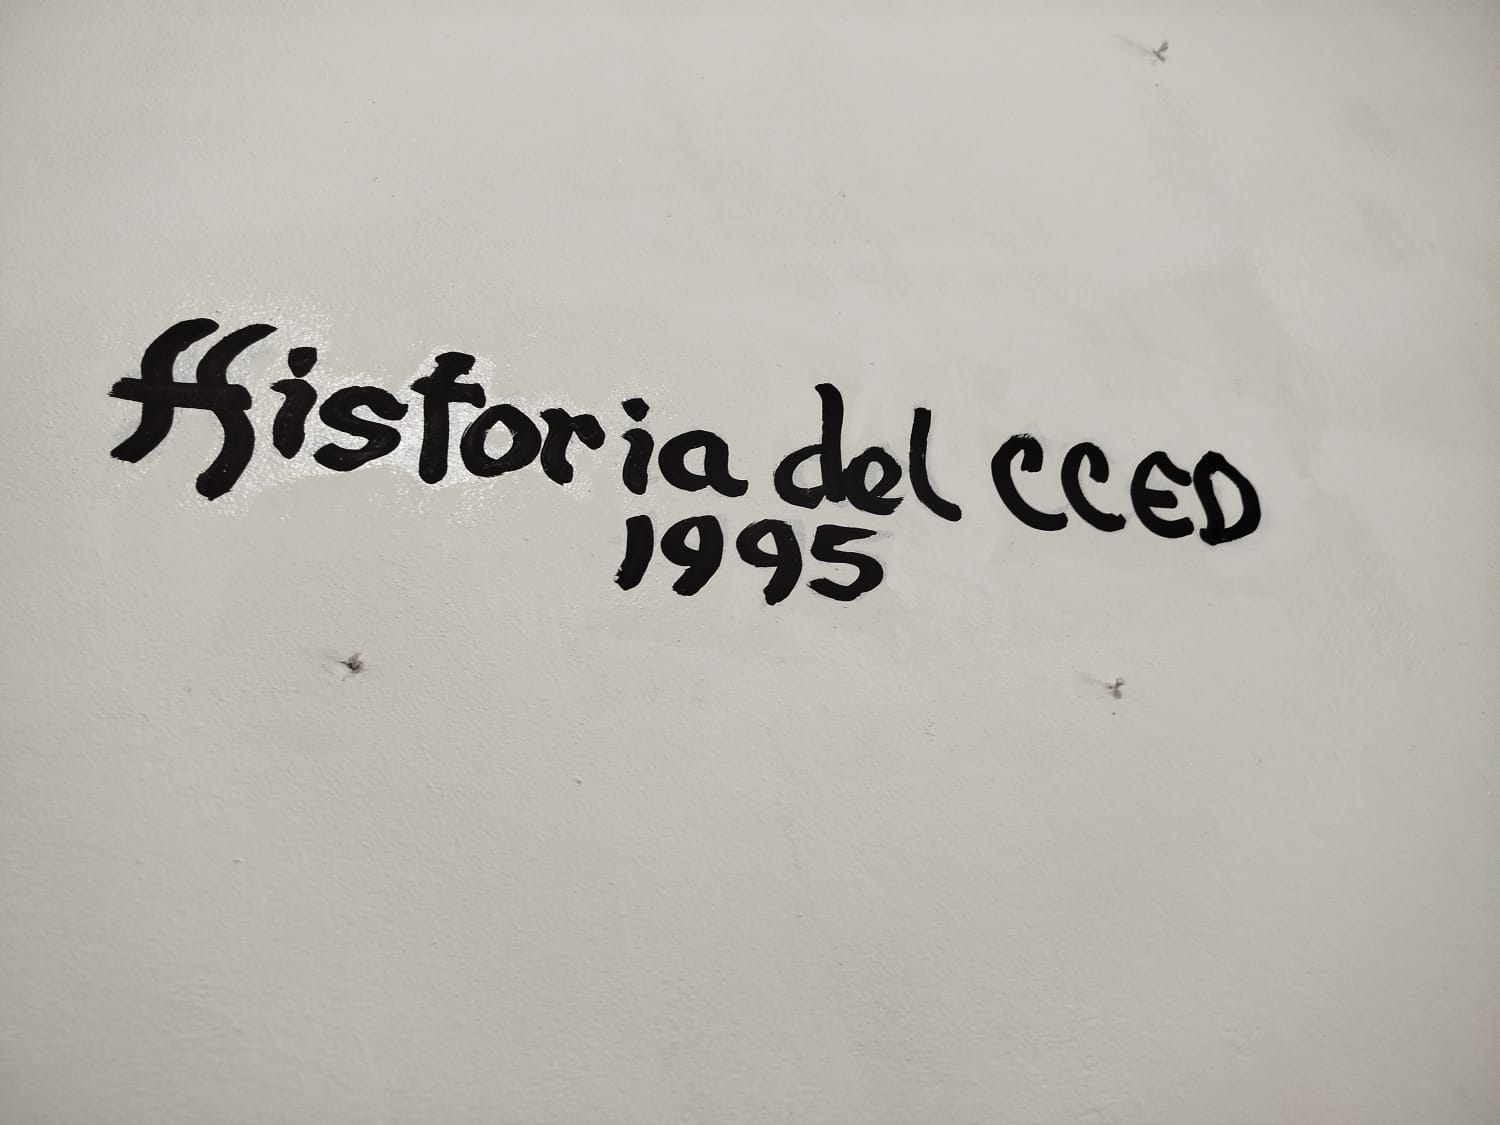 Historia del CCED
1995